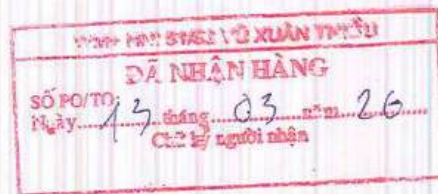 VÕ XUÂN THIỀU
ĐÃ NHẬN HÀNG
SỐ PO/TO:
Ngày 13 tháng 03 năm 26
Chữ ký người nhận